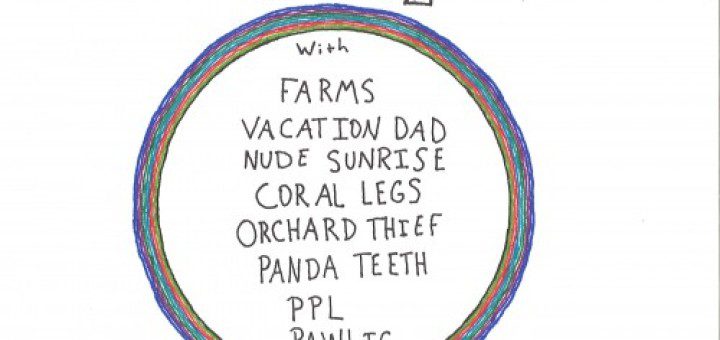 With
FARMS
VACATION DAD
NUDE SUNRISE
CORAL LEGS
ORCHARD THIEF
PANDA TEETH
PPL